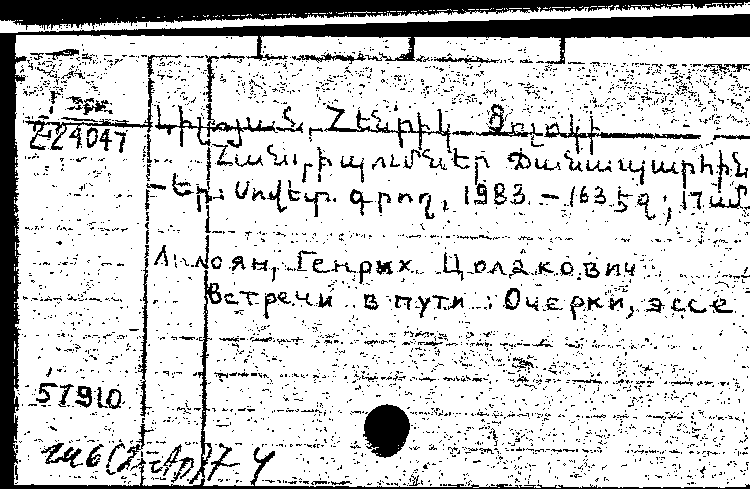 2-24047
Լիլոյան, Հենրիկ Ցոլակի
Հանդիպումներ ճանապարհին
- Եր.: Սովետ. գրող, 1983. - 163 էջ; 17 սմ
Лилоян, Генрих Цолакович
Встречи в пути : Очерки, эссе
57910